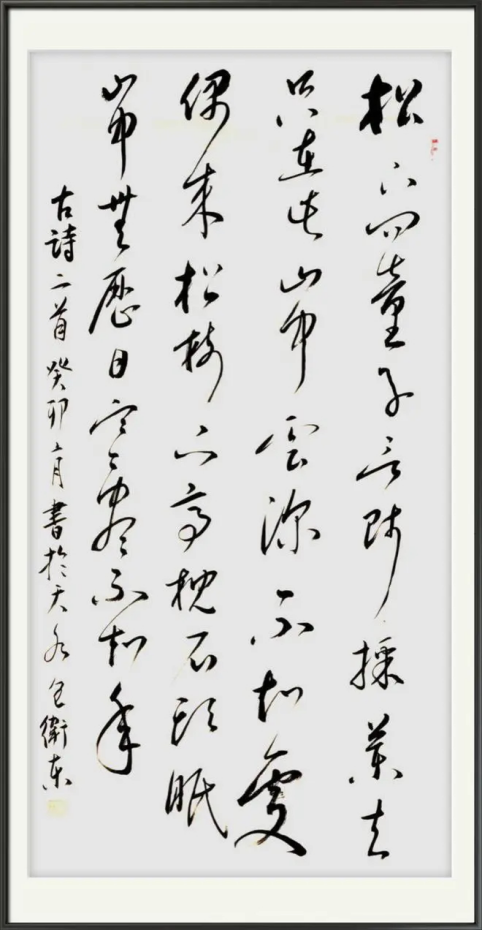 松下问童子言師採藥去
只在此山中雲深不知處
偶来松树下高枕石头眠
山中無歷日寒盡不知年
古詩二首癸卯月書於天水包衛東